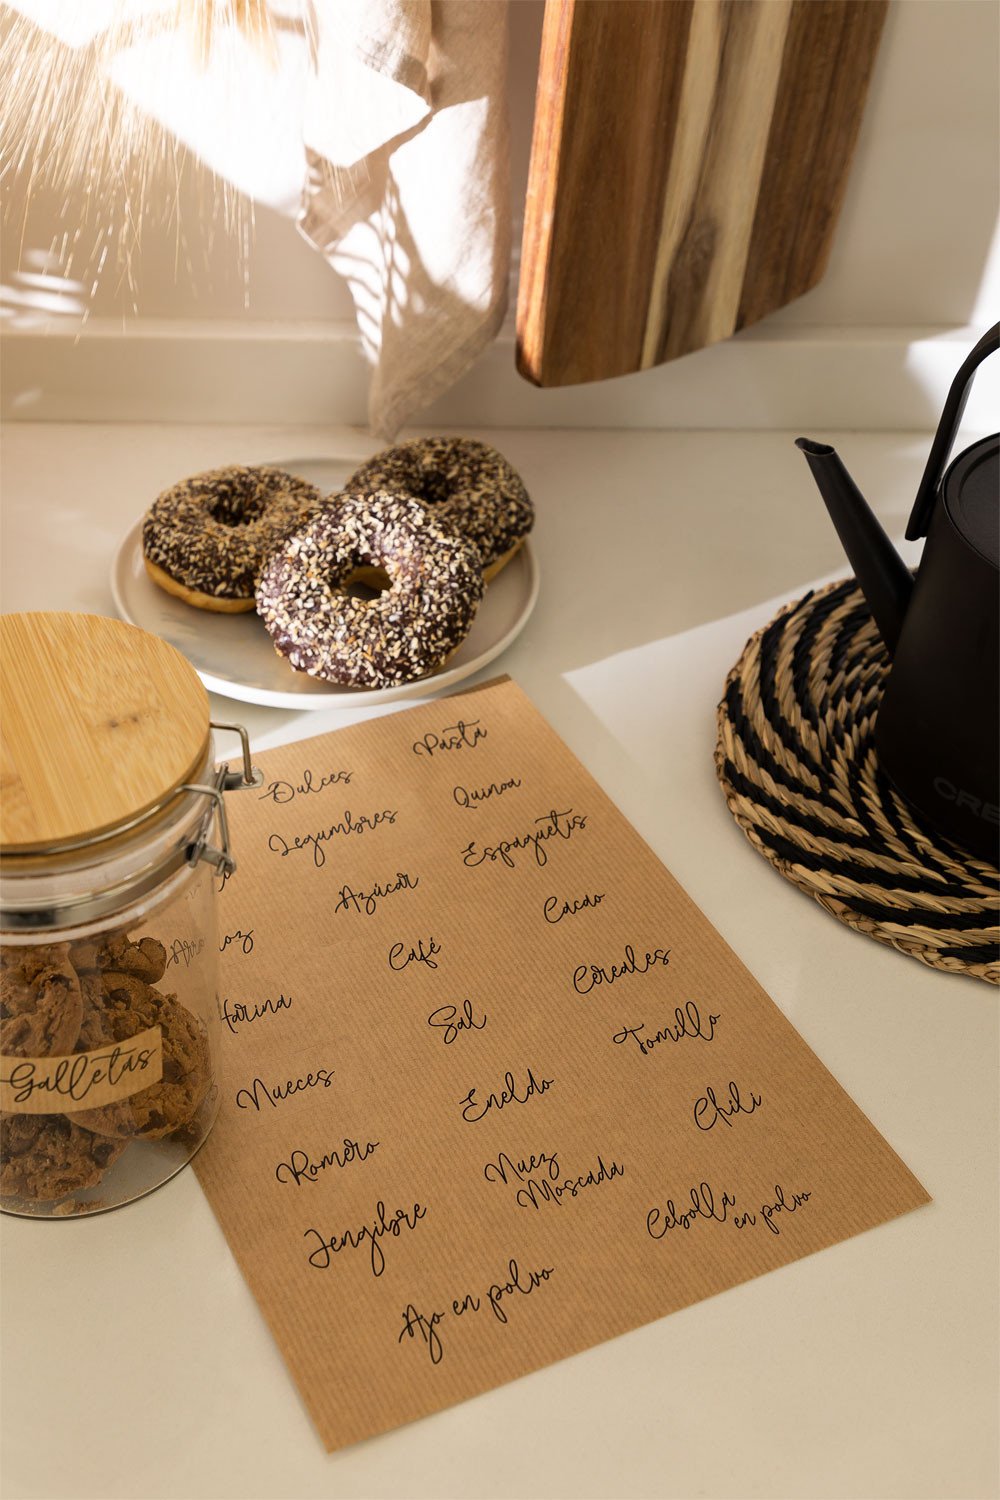 Dulces
Pasta
Legumbres
Quinoa
Azúcar
Espaguetis
Café
Cacao
Harina
Sal
Cereales
Nueces
Eneldo
Tomillo
Romero
Nuez
Moscada
Chili
Jengibre
Ajo en polvo
Cebolla
en polvo
Galletas